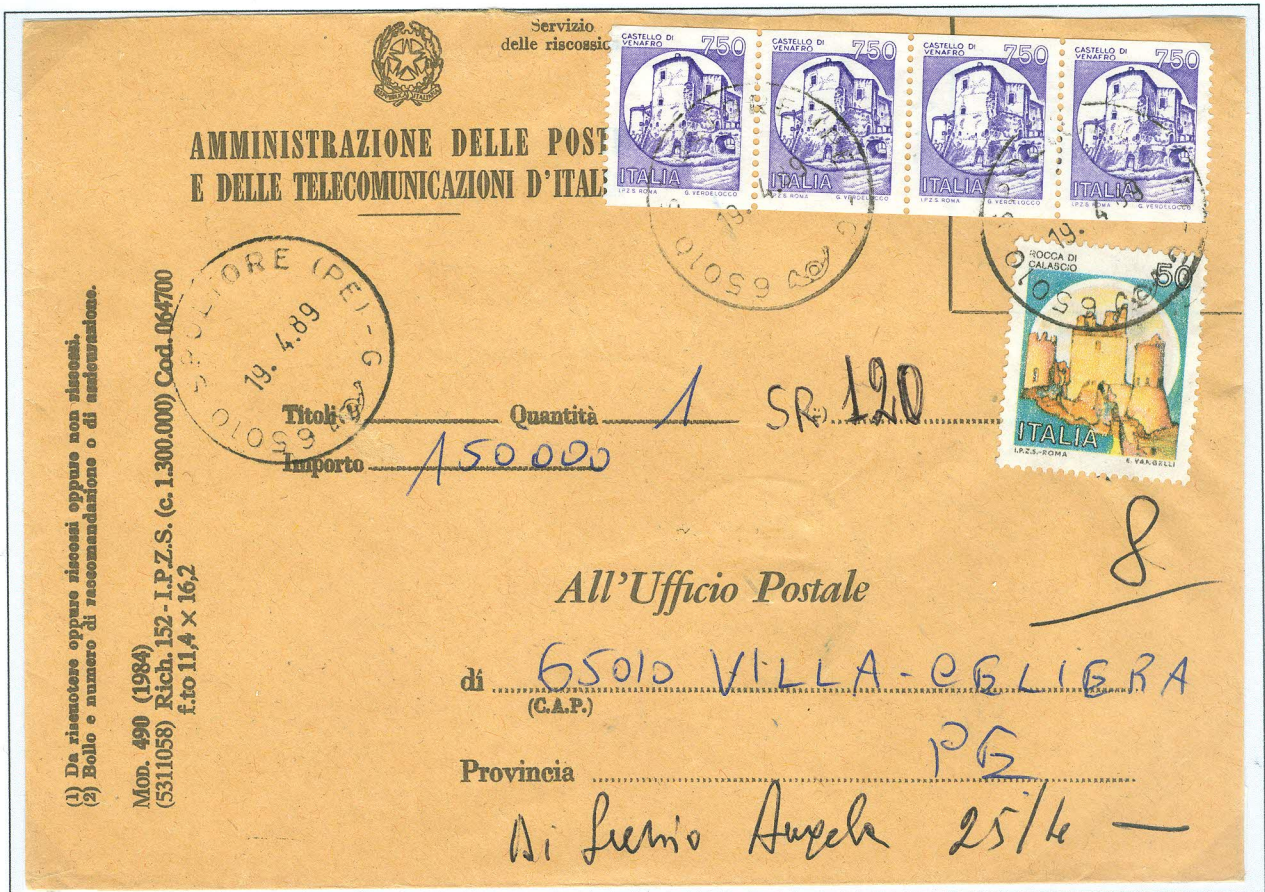 Servizio
delle riscossio
AMMINISTRAZIONE DELLE POST
E DELLE TELECOMUNICAZIONI D'ITAL
CASTELLO DI VENAFRO 750
ITALIA
I.P.Z.S. ROMA G. VERDELOCCO
CASTELLO DI VENAFRO 750
ITALIA
I.P.Z.S. ROMA G. VERDELOCCO
CASTELLO DI VENAFRO 750
ITALIA
I.P.Z.S. ROMA G. VERDELOCCO
CASTELLO DI VENAFRO 750
ITALIA
I.P.Z.S. ROMA G. VERDELOCCO
65010
19. 4. 89
65010
19. 4. 89
ROCCA DI
CALASCIO
50
ITALIA
I.P.Z.S.-ROMA E. VANGELLI
65010 SPOLTORE (PE) - G
19. 4.89
Titoli Quantità 1 SR. 120
Importo 150000
8
All'Ufficio Postale
di 65010 VILLA-CELIERA
(C.A.P.)
PE
Provincia
Di Angela 25/4 —
(1) Da riscuotere oppure riscossi oppure non riscossi.
(2) Bollo e numero di raccomandazione o di assicurazione.
Mod. 490 (1984)
(5311058) Rich. 152 - I.P.Z.S. (c. 1.300.000) Cod. 064700
f.to 11,4 × 16,2